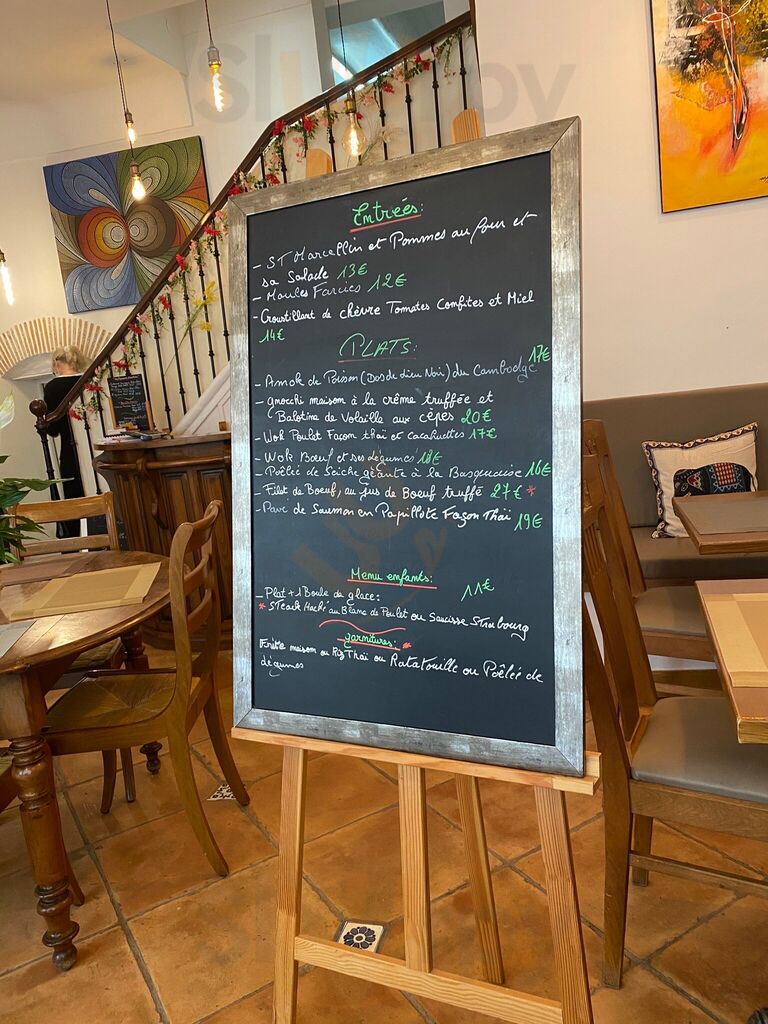 Entrées:
- ST Marcellin et Pommes au four et
sa Salade 13€
- Moules Farcies 12€
- Croustillant de chèvre Tomates Comfites et Miel
14€
PLATS:
- Amok de Poisson (Dos de Lieu Noir) du Cambodge 17€
- gnocchi maison à la crème truffée et
Balotine de Volaille aux cèpes 20€
- Wok Poulet Façon thaï et cacahuètes 17€
- Wok Bœuf et ses légumes 18€
- Poêlée de Seiche géante à la Basquaise 16€
- Filet de Boeuf, au jus de Boeuf truffé 27€ *
- Pavé de Saumon en Papillote Façon Thaï 19€
Menu enfants:
- Plat + 1 Boule de glace: 11€
* Steack Haché ou Blanc de Poulet ou Saucisse Strasbourg
garnitures: *
Frite maison ou Riz Thaï ou Ratatouille ou Poêlée de
légumes